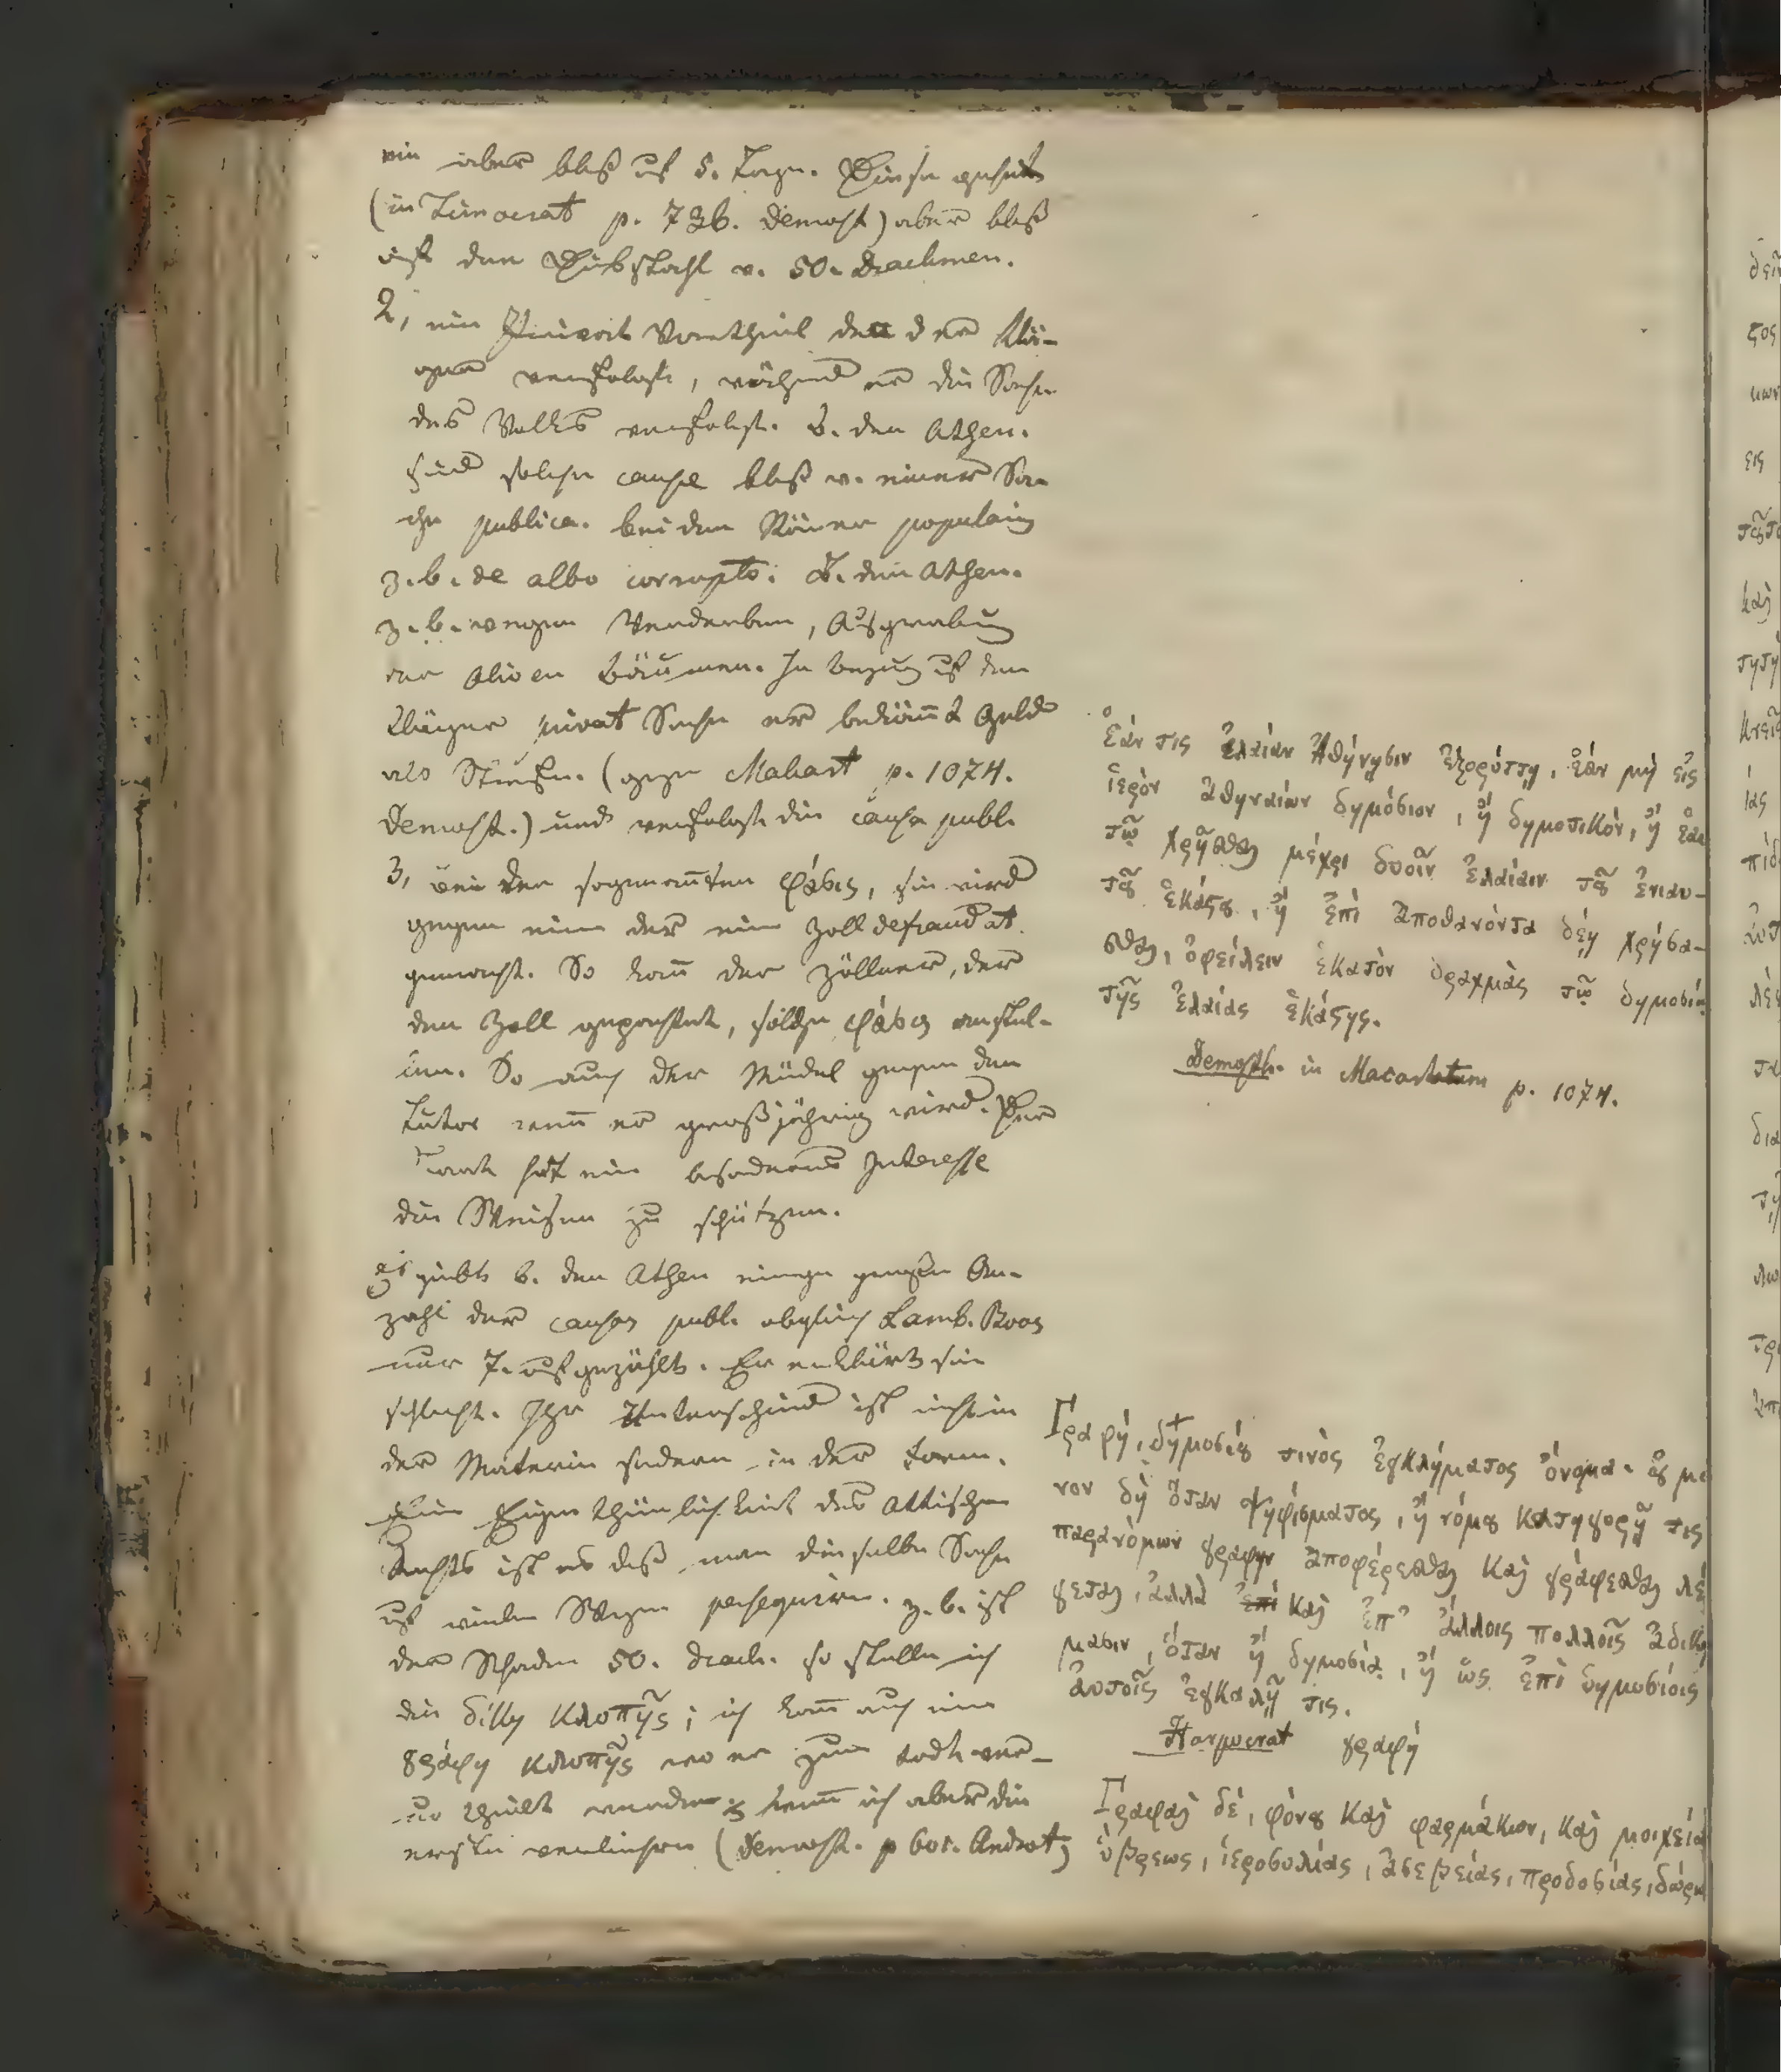 ein aber bloß auf 5. Tage. Diese geht
(in Timocrat p. 736. Demosth) aber bloß
auf den Diebstahl v. 50. Drachmen.
2, ein Privat Vortheil den der Klä-
ger verfolgt, während er die Sache
des Volks verfolgt. b. den Athen.
sind solche causae bloß v. einer Sa-
che publica. bei den Römer popularis
z. b. de albo corrupto. b. den Athen.
z. b. wegen Verderben, Ausgrabung
der Oliven Bäumen. In bezug auf den
Kläger privat Sache er bekom̄t Geld
als Strafe. (gegen Makart p. 1074.
Demosth.) und verfolgt die causa publ.
3, bei der sogenan̄ten φάσις, sie wird
gegen einen der eine Zoll defraudat.
gemacht. So kan̄ der Zöllner, der
den Zoll gepachtet, solche φάσις anstel-
len. So auch der Mündel gegen den
Tutor wen̄ er großjährig wird. Der
Staat hat ein besonderes Interesse
die Waisen zu schützen.
es giebt b. den Athen einege große An-
zahl der causas publ. obgleich Lamb. Boos
nur 7. aufgezählt. Er erklärt sie
schlecht. Ihr Unterschied ist nicht in
der Materie sondern in der Form.
Eine Eigenthümlichkeit des Attischen
Rechts ist es daß man dieselbe Sache
auf vielen Wegen persequiren. z. b. ist
der Schaden 50. drach. so stelle ich
die δίκη κλοπῆς; ich kan̄ auch eine
γράφη κλοπῆς wo er zum todt ver-
urtheilt werden kan̄ ich aber die
erste verliehren (Demosth. p 601. Androt)
Ἐάν τις ἐλαίαν Ἀθήνῃσιν ἐξορύττῃ, ἐὰν μὴ εἰς
ἱερὸν ἀθηναίων δημόσιον, ἢ δημοτικὸν, ἢ ἑαυ
τῷ χρῆσθαι μέχρι δυοῖν ἐλαίαιν τοῦ ἐνιαυ-
τοῦ ἑκάστου, ἢ ἐπὶ ἀποθανόντα δέῃ χρήσα-
σθαι, ὀφείλειν ἑκατὸν δραχμὰς τῷ δημοσίῳ
τῆς ἐλαίας ἑκάστης.
Demosth. in Macartatum p. 1074.
Γραφή, δημοσίου τινὸς ἐγκλήματος ὄνομα. οὐ μό
νον δὴ ὅταν ψηφίσματος, ἢ νόμου κατηγορῇ τις
παρανόμων γραφην ἀποφέρεσθαι καὶ γράφεσθαι λέ
γεται, ἀλλὰ ἐπὶ καὶ ἐπ' ἄλλοις πολλοῖς ἀδική
μασιν, ὅταν ἢ δημοσίᾳ, ἢ ὡς ἐπὶ δημοσίοις
ἀυτοῖς ἐγκαλῇ τις.
Harpocrat γραφή
Γραφαὶ δὲ, φόνου καὶ φαρμάκων, καὶ μοιχεία
ὕβρεως, ἱεροσυλίας, ἀσεβείας, προδοσίας, δώρω